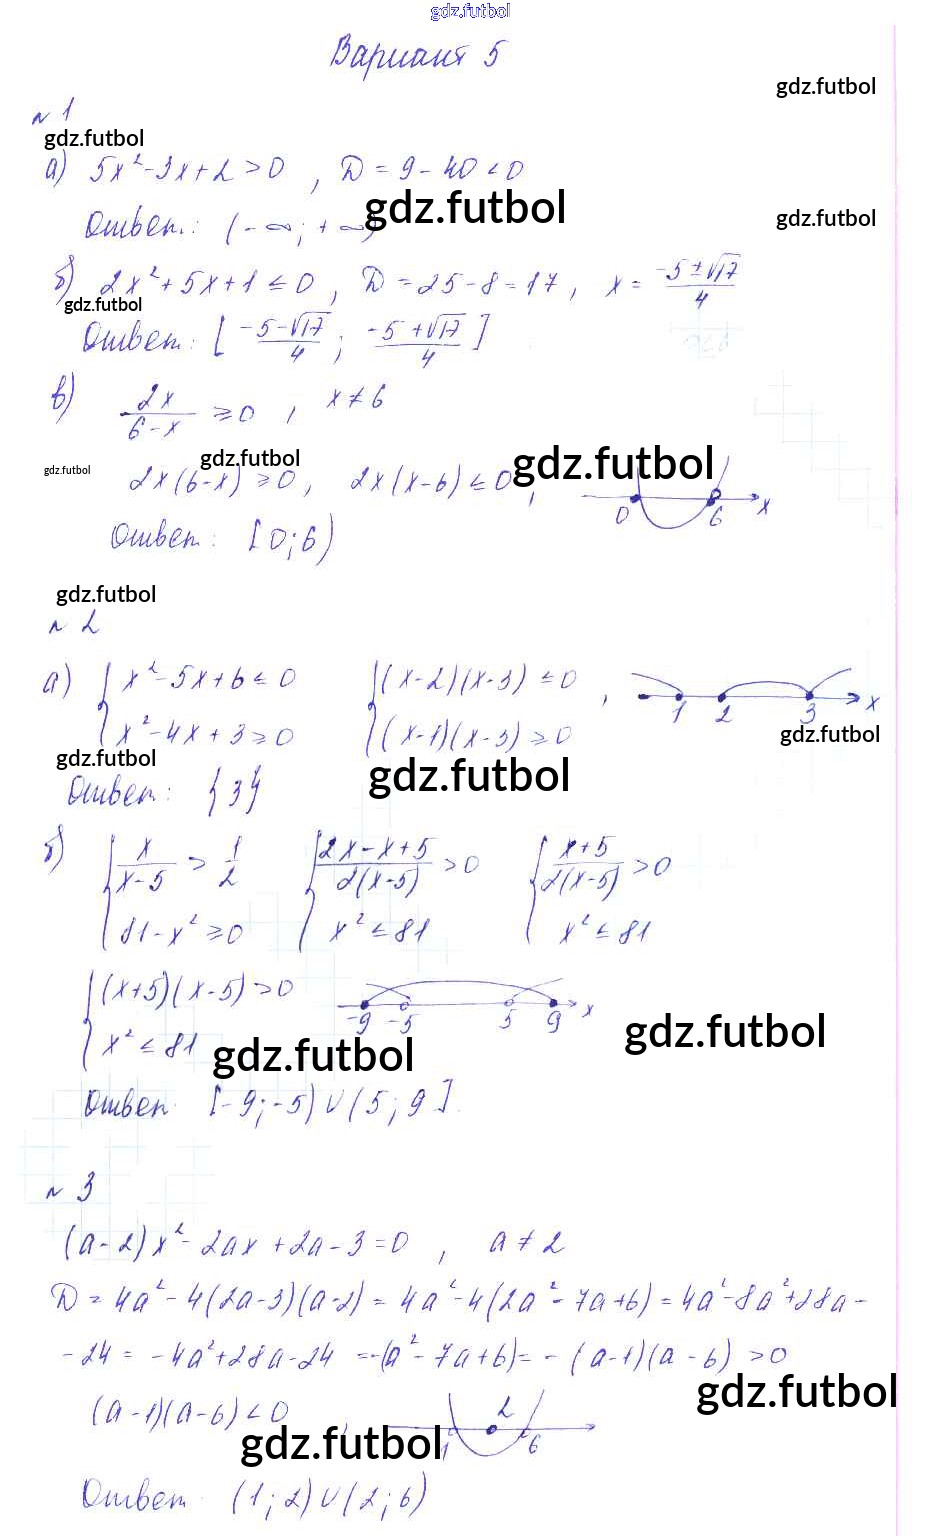 gdz.futbol
Вариант 5
gdz.futbol
№ 1
gdz.futbol
а) 5x² - 3x + 2 > 0 , D = 9 - 40 < 0
Ответ: (-∞; +∞)
gdz.futbol
gdz.futbol
б) 2x² + 5x + 1 ≤ 0 , D = 25 - 8 = 17 , x = (-5 ± √17)/4
gdz.futbol
Ответ: [(-5 - √17)/4 ; (-5 + √17)/4]
в) 2x/(6 - x) ≥ 0 , x ≠ 6
gdz.futbol
gdz.futbol
gdz.futbol
2x(6 - x) ≥ 0 , 2x(x - 6) ≤ 0 , 0 6 x
Ответ: [0; 6)
gdz.futbol
№ 2
а) { x² - 5x + 6 ≤ 0 { (x - 2)(x - 3) ≤ 0 , 1 2 3 x
{ x² - 4x + 3 ≥ 0 { (x - 1)(x - 3) ≥ 0
gdz.futbol
gdz.futbol
gdz.futbol
Ответ: {3}
б) { x/(x - 5) > 1/2 { (2x - x + 5)/(2(x - 5)) > 0 { (x + 5)/(2(x - 5)) > 0
{ 81 - x² ≥ 0 { x² ≤ 81 { x² ≤ 81
{ (x + 5)(x - 5) > 0 -9 -5 5 9 x
{ x² ≤ 81
gdz.futbol
gdz.futbol
Ответ: [-9; -5) ∪ (5; 9].
№ 3
(a - 2)x² - 2ax + 2a - 3 = 0 , a ≠ 2
D = 4a² - 4(2a - 3)(a - 2) = 4a² - 4(2a² - 7a + 6) = 4a² - 8a² + 28a -
- 24 = -4a² + 28a - 24 = -(a² - 7a + 6) = -(a - 1)(a - 6) > 0
gdz.futbol
(a - 1)(a - 6) < 0 , 1 2 6
gdz.futbol
Ответ: (1; 2) ∪ (2; 6)